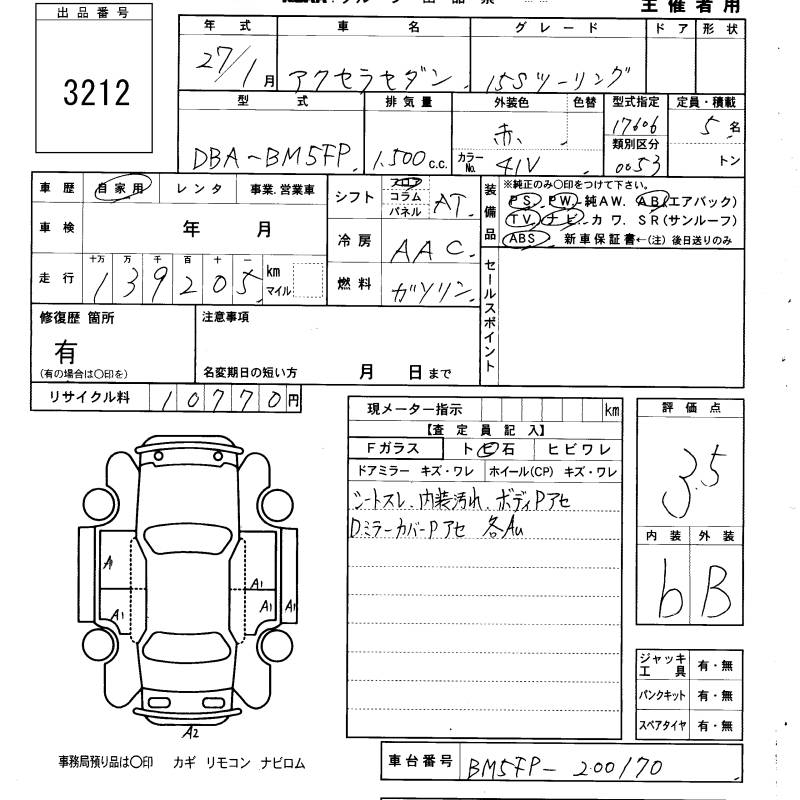 グループ 出品票
主催者用
出品番号
3212
年式 車名 グレード ドア 形状
27/1月 アクセラセダン 15Sツーリング
型式 排気量 外装色 色替 型式指定 定員・積載
DBA-BM5FP 1.500c.c. 赤 17606 5名
カラーNo. 41V 類別区分 0053 トン
車歴 自家用 レンタ 事業.営業車
シフト フロア コラム パネル AT
車検 年 月
冷房 AAC
走行 十万 万 千 百 十 一
139205 km マイル
燃料 ガソリン
装備品
※純正のみ○印をつけて下さい。
PS. PW. 純AW. AB(エアバック)
TV. ナビ. カワ. SR(サンルーフ)
ABS 新車保証書←(注) 後日送りのみ
セールスポイント
修復歴 箇所
有
(有の場合は○印を)
注意事項
名変期日の短い方 月 日まで
リサイクル料 10770円
現メーター指示 km
【査定員記入】
Fガラス ト ビ 石 ヒビワレ
ドアミラー キズ・ワレ ホイール(CP) キズ・ワレ
シートスレ、内装汚れ、ボディPアセ
DミラーカバーPアセ 各Au
評価点
3.5
内装 外装
b B
A1
A1
A1
A1
A1
A2
ジャッキ工具 有・無
パンクキット 有・無
スペアタイヤ 有・無
事務局預り品は○印 カギ リモコン ナビロム
車台番号 BM5FP-200170